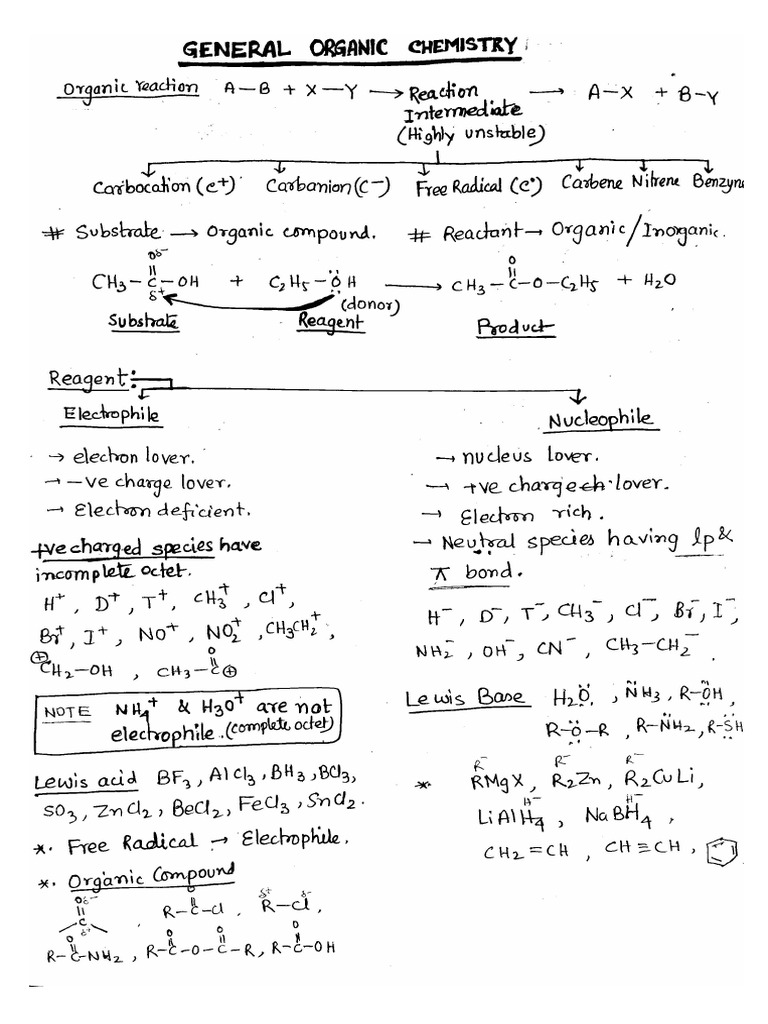 GENERAL ORGANIC CHEMISTRY
Organic reaction A–B + X–Y ⟶ Reaction Intermediate (Highly unstable) ⟶ A–X + B–Y
Carbocation (c⁺) Carbanion (C⁻) Free Radical (C•) Carbene Nitrene Benzyne
# Substrate ⟶ Organic compound. # Reactant → Organic/Inorganic.
Oδ⁻ O
CH₃–C–OH + C₂H₅–ÖH ⟶ CH₃–C–O–C₂H₅ + H₂O
δ⁺ (donor)
Substrate Reagent Product
Reagent:
Electrophile
→ electron lover.
→ -ve charge lover.
→ Electron deficient.
+ve charged species have
incomplete octet.
H⁺, D⁺, T⁺, CH₃⁺, Cl⁺,
Br⁺, I⁺, NO⁺, NO₂⁺, CH₃CH₂⁺,
⊕CH₂–OH, CH₃–C⊕
O
NOTE NH₄⁺ & H₃O⁺ are not
electrophile. (complete octet)
Lewis acid BF₃, AlCl₃, BH₃, BCl₃,
SO₃, ZnCl₂, BeCl₂, FeCl₃, SnCl₂.
*. Free Radical → Electrophile.
*. Organic Compound
Oδ⁻ O δ⁺ δ⁻
C R–C–Cl, R–Cl,
δ⁺
O O O O
R–C–NH₂, R–C–O–C–R, R–C–OH
Nucleophile
→ nucleus lover.
→ +ve charge lover.
→ Electron rich.
→ Neutral species having lp &
π bond.
H⁻, D⁻, T⁻, CH₃⁻, Cl⁻, Br⁻, I⁻,
NH₂⁻, OH⁻, CN⁻, CH₃–CH₂⁻
Lewis Base H₂O, NH₃, R–OH,
R–O–R, R–NH₂, R–SH
R⁻ R⁻ R⁻
* RMgX, R₂Zn, R₂CuLi,
H⁻ H⁻
LiAlH₄, NaBH₄,
CH₂=CH, CH≡CH,